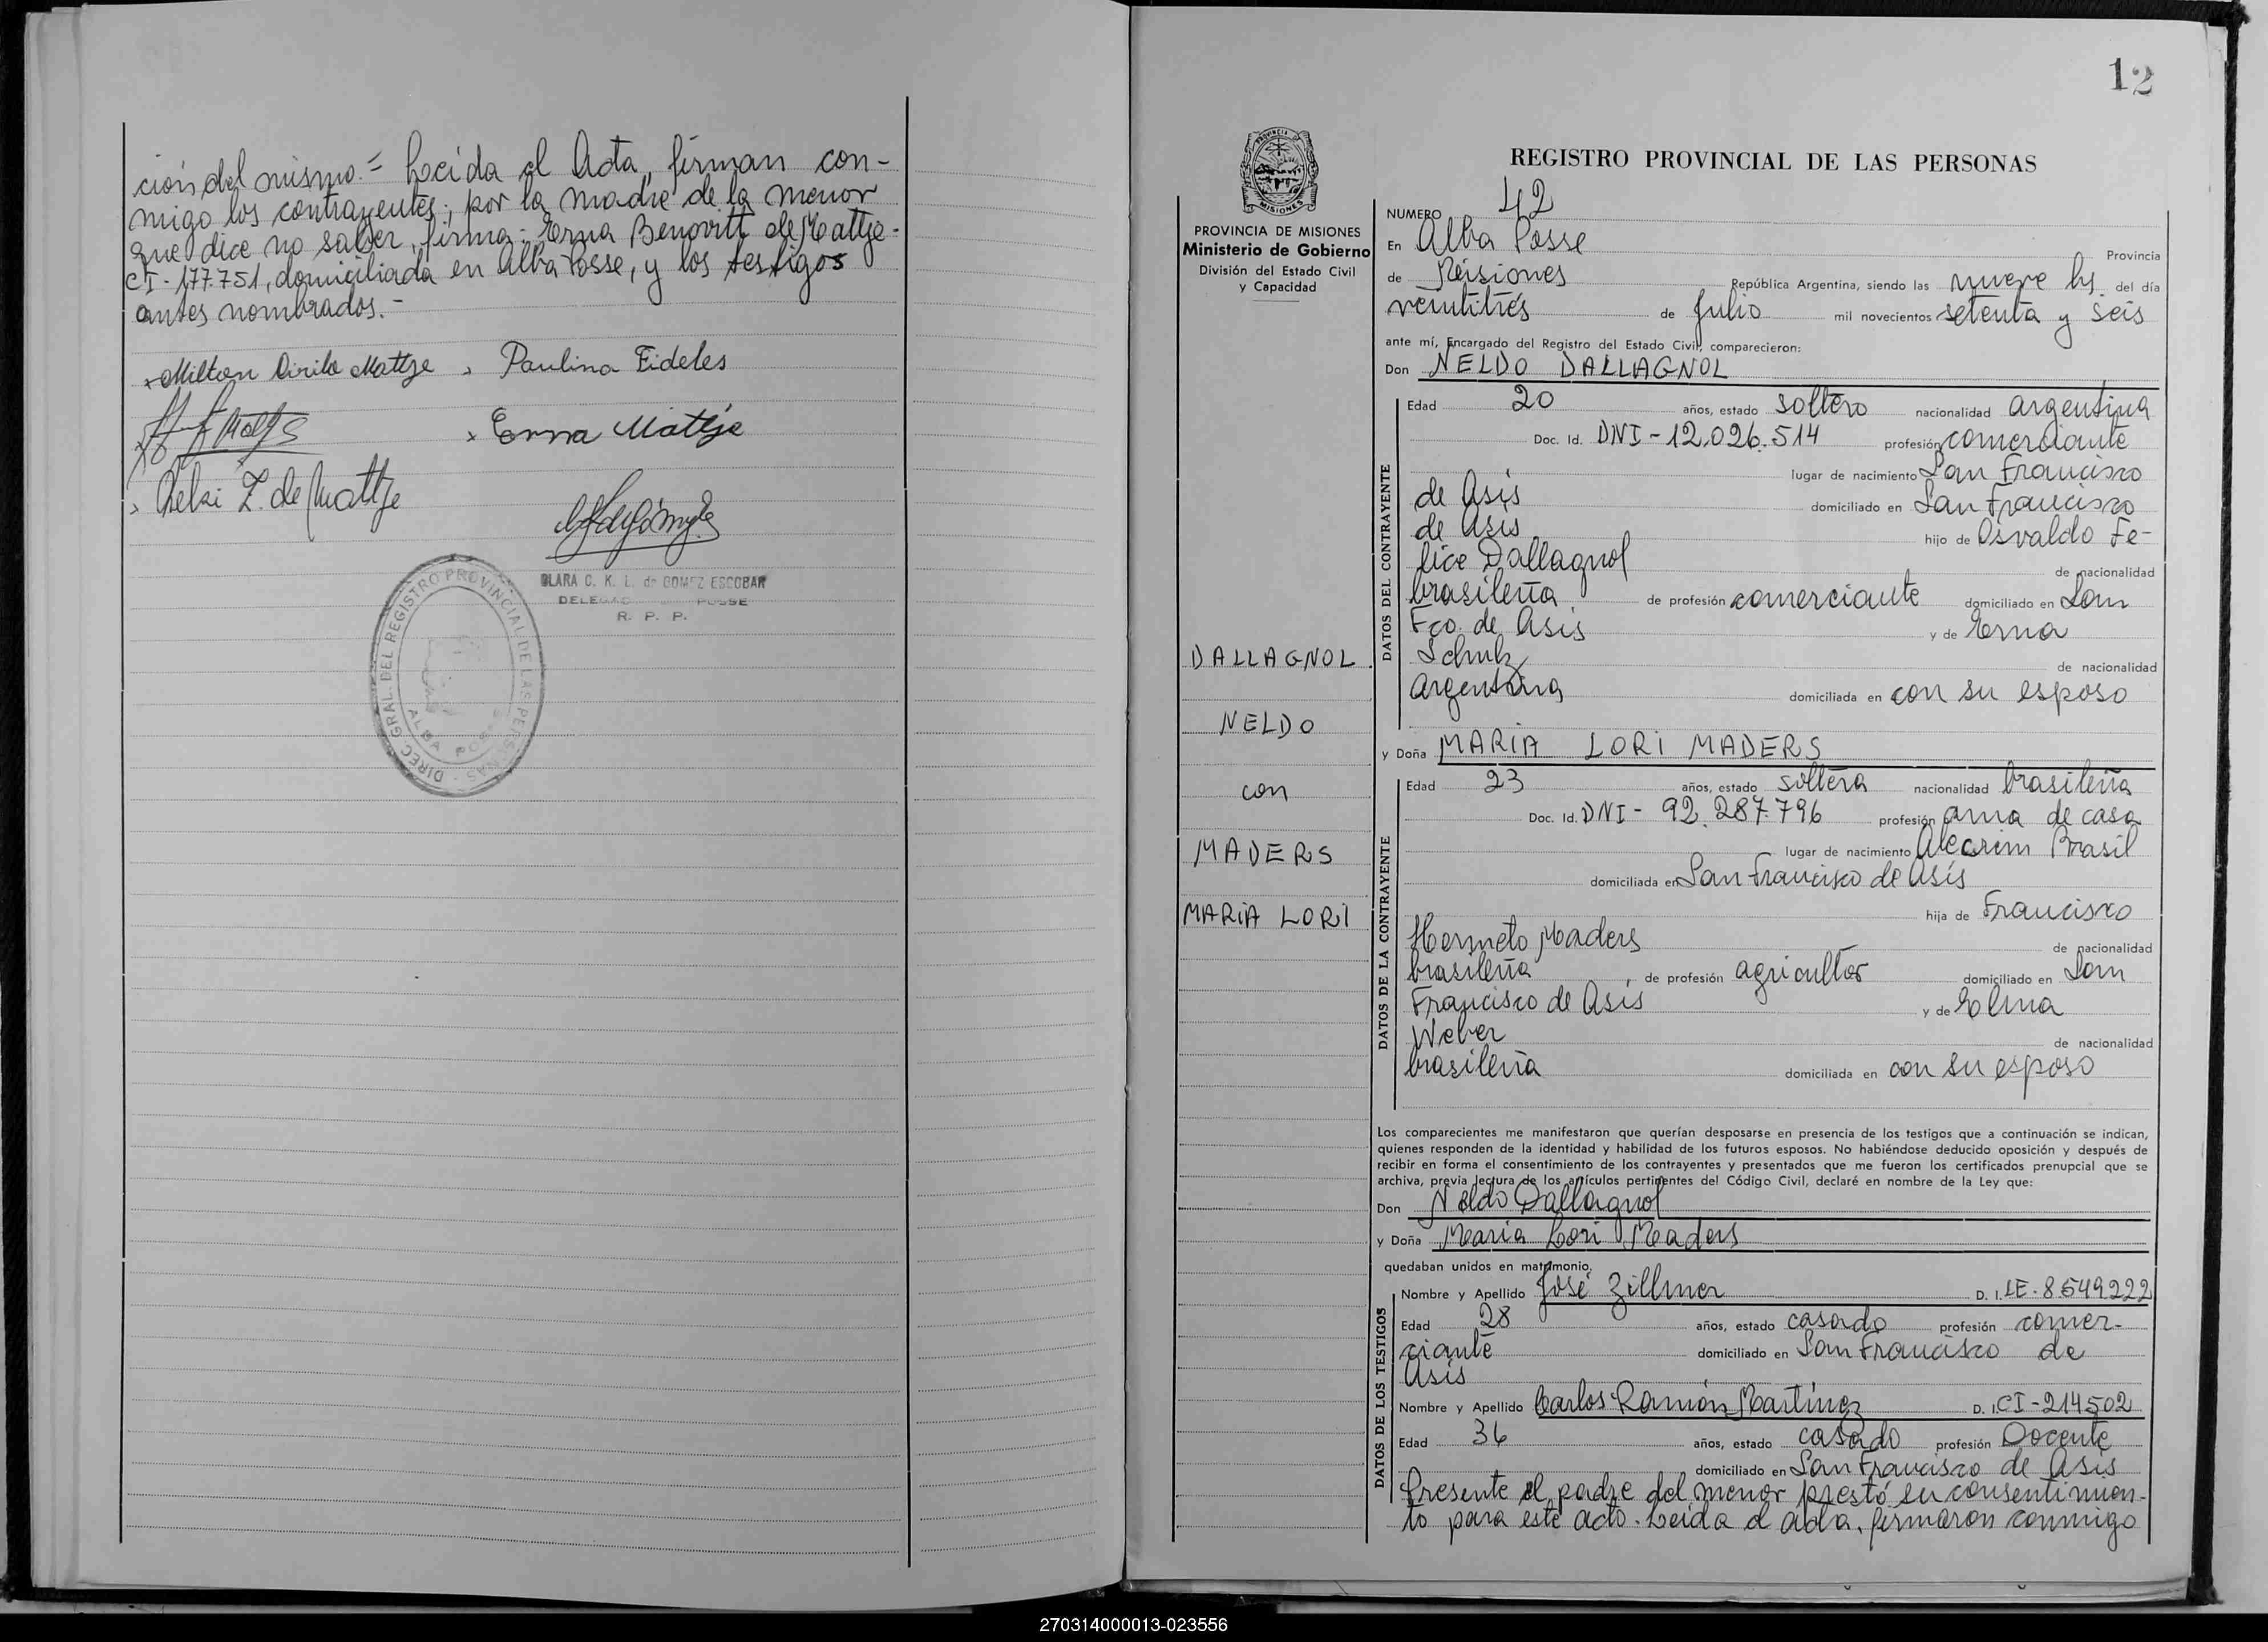 ción del mismo.= Leída el Acta, firman con-
migo los contrayentes; por la madre de la menor
que dice no saber, firma: Erna Benovitt de Mattje-
CI-177.751, domiciliada en Alba Posse, y los testigos
antes nombrados.-
Milton Cirilo Mattje
Paulina Fideles
Erna Mattje
Z. de Mattje
CLARA C. K. L. de GOMEZ ESCOBAR
R. P. P.
DIREC. GRAL. DEL REGISTRO PROVINCIAL DE LAS PERSONAS
ALBA POSSE
12
PROVINCIA
MISIONES
PROVINCIA DE MISIONES
Ministerio de Gobierno
División del Estado Civil
y Capacidad
DALLAGNOL
NELDO
con
MADERS
MARIA LORI
REGISTRO PROVINCIAL DE LAS PERSONAS
NUMERO 42
En Alba Posse Provincia
de Misiones República Argentina, siendo las nueve hs. del día
veintitrés de Julio mil novecientos setenta y seis
ante mí, Encargado del Registro del Estado Civil, comparecieron:
Don NELDO DALLAGNOL
DATOS DEL CONTRAYENTE
Edad 20 años, estado soltero nacionalidad argentina
Doc. Id. DNI-12.026.514 profesión comerciante
lugar de nacimiento San Francisco
de Asís domiciliado en San Francisco
de Asís hijo de Osvaldo Fe-
lice Dallagnol de nacionalidad
brasileña de profesión comerciante domiciliado en San
Fco. de Asís y de Erna
Schulz de nacionalidad
Argentina domiciliada en con su esposo
y Doña MARIA LORI MADERS
DATOS DE LA CONTRAYENTE
Edad 23 años, estado soltera nacionalidad brasileña
Doc. Id. DNI- 92.287.796 profesión ama de casa
lugar de nacimiento Alecrim Brasil
domiciliada en San Francisco de Asís
hija de Francisco
Hermeto Maders de nacionalidad
brasileña, de profesión agricultor domiciliado en San
Francisco de Asís y de Elma
Weber de nacionalidad
brasileña domiciliada en con su esposo
Los comparecientes me manifestaron que querían desposarse en presencia de los testigos que a continuación se indican,
quienes responden de la identidad y habilidad de los futuros esposos. No habiéndose deducido oposición y después de
recibir en forma el consentimiento de los contrayentes y presentados que me fueron los certificados prenupcial que se
archiva, previa lectura de los artículos pertinentes del Código Civil, declaré en nombre de la Ley que:
Don Neldo Dallagnol
y Doña Maria Lori Maders
quedaban unidos en matrimonio.
DATOS DE LOS TESTIGOS
Nombre y Apellido José Zillmer D. I. LE-8.549.222
Edad 28 años, estado casado profesión comer-
ciante domiciliado en San Francisco de
Asís
Nombre y Apellido Carlos Ramón Martínez D. I. CI-214502
Edad 36 años, estado casado profesión Docente
domiciliado en San Francisco de Asís
Presente el padre del menor prestó su consentimien-
to para este acto. Leída el acta, firmaron conmigo
270314000013-023556